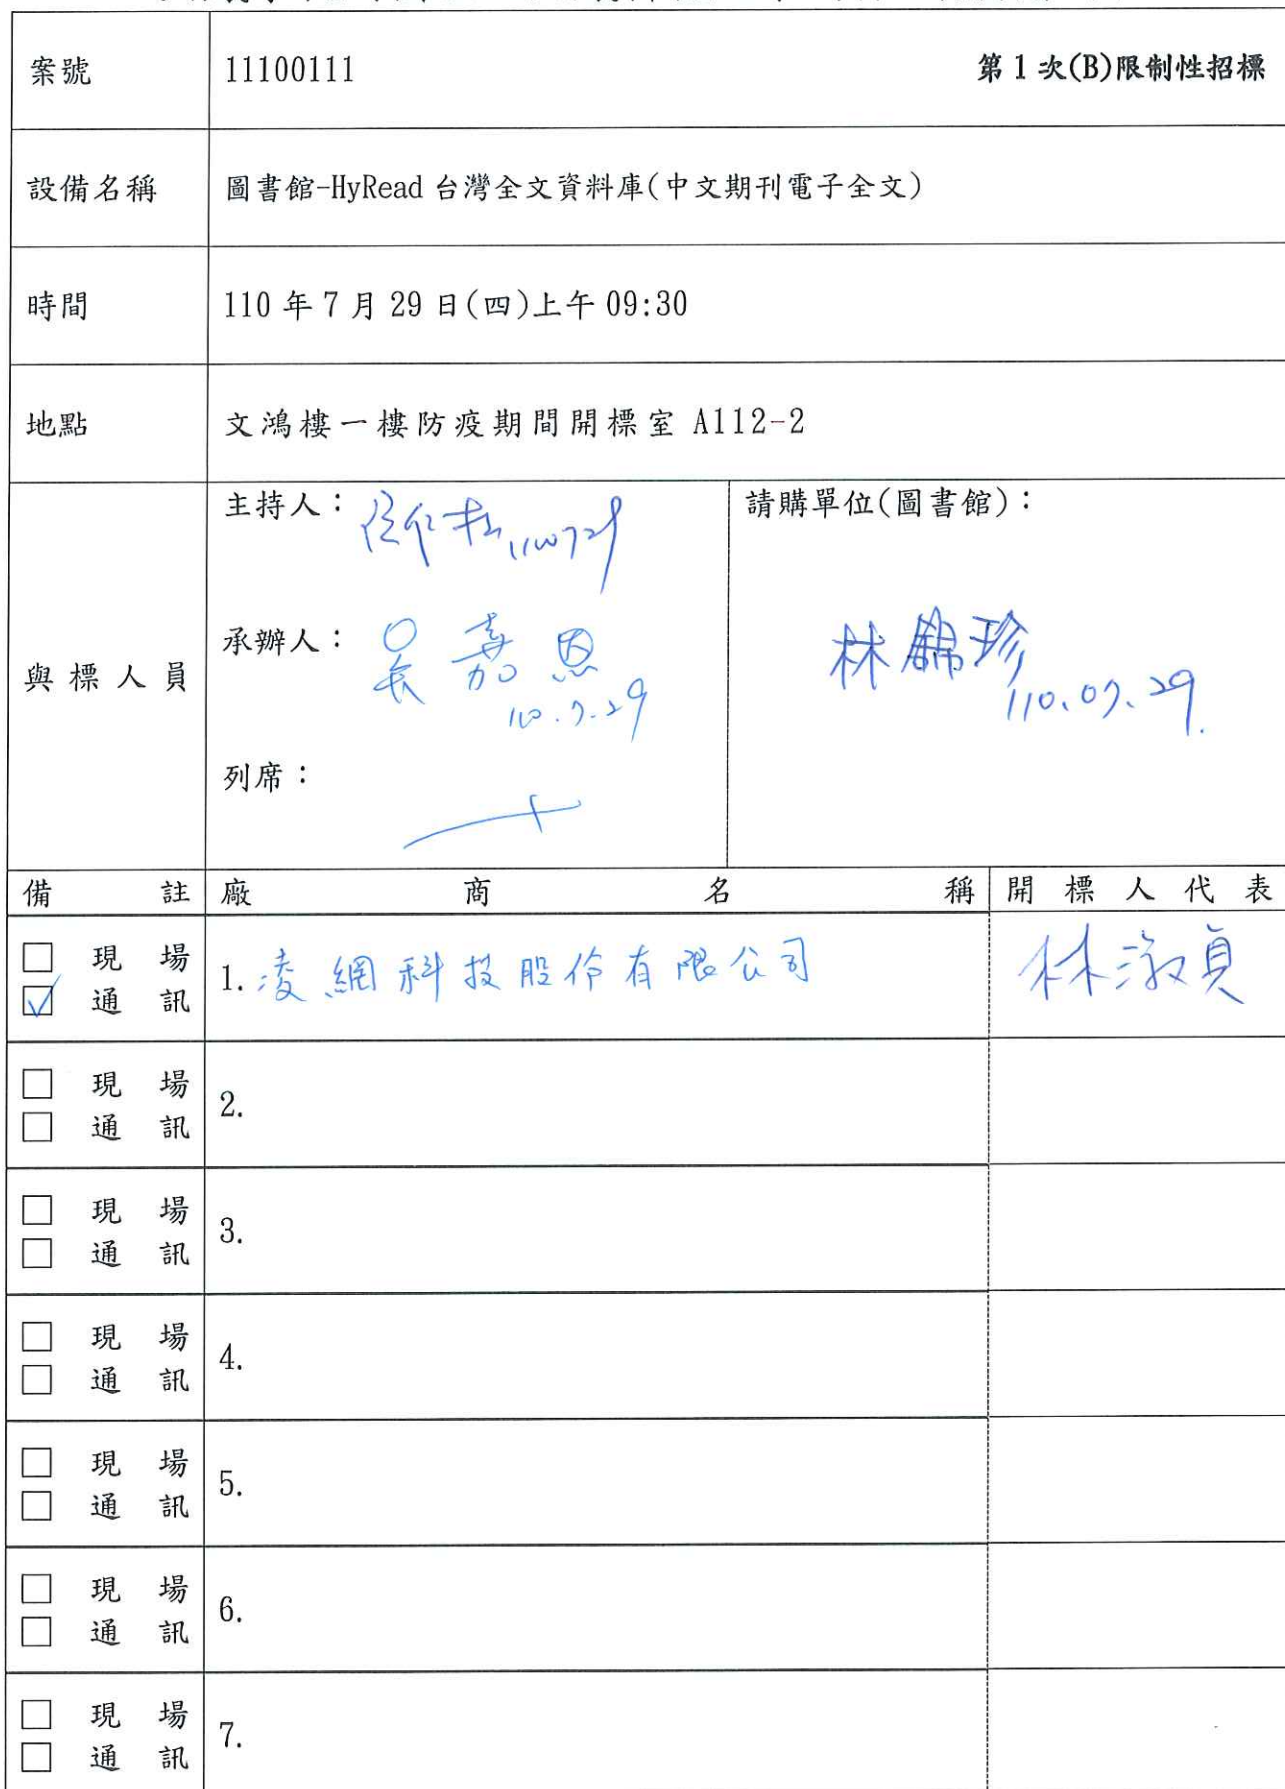 案號 11100111 第1次(B)限制性招標
設備名稱 圖書館-HyRead 台灣全文資料庫(中文期刊電子全文)
時間 110 年 7 月 29 日(四)上午 09:30
地點 文鴻樓一樓防疫期間開標室 A112-2
與標人員
主持人：
1100729
承辦人：吳嘉恩
110.7.29
列席：
請購單位(圖書館)：
林錦珍
110.07.29.
備註 廠商名稱 開標人代表
□ 現場
☑ 通訊
1. 凌網科技股份有限公司 林淑貞
□ 現場
□ 通訊
2.
□ 現場
□ 通訊
3.
□ 現場
□ 通訊
4.
□ 現場
□ 通訊
5.
□ 現場
□ 通訊
6.
□ 現場
□ 通訊
7.